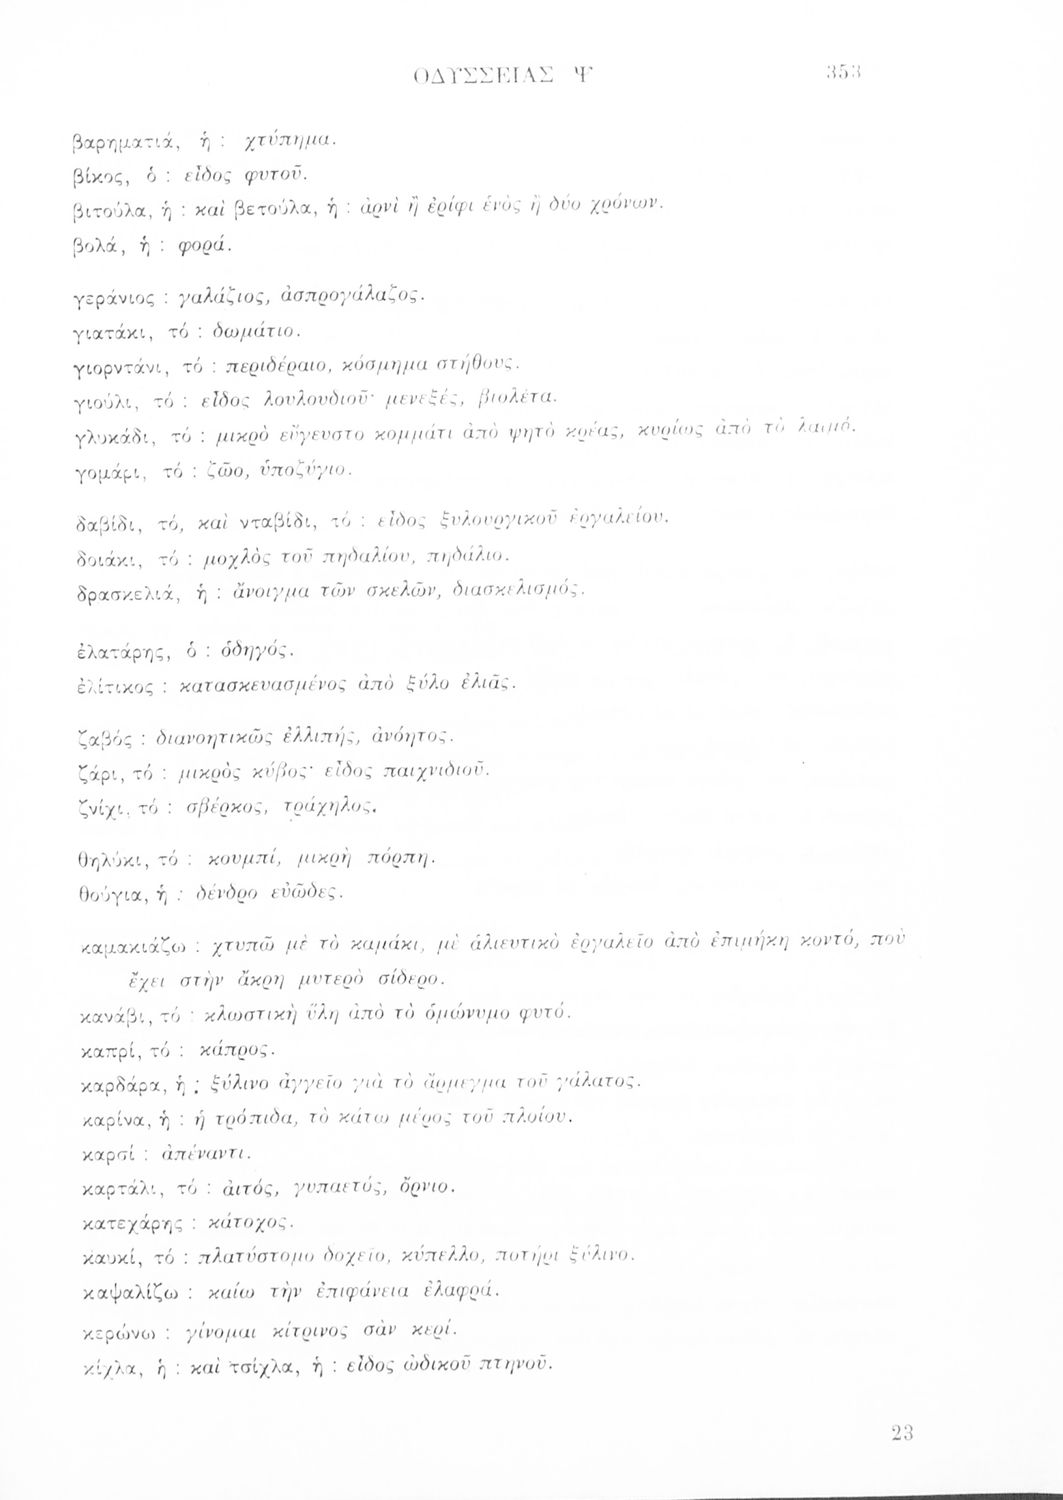 ΟΔΥΣΣΕΙΑΣ Ψ 353
βαρηματιά, ἡ : χτύπημα.
βίκος, ὁ : εἶδος φυτοῦ.
βιτούλα, ἡ : καὶ βετούλα, ἡ : ἀρνὶ ἢ ἐρίφι ἑνὸς ἢ δύο χρόνων.
βολά, ἡ : φορά.
γεράνιος : γαλάζιος, ἀσπρογάλαζος.
γιατάκι, τό : δωμάτιο.
γιορντάνι, τό : περιδέραιο, κόσμημα στήθους.
γιούλι, τό : εἶδος λουλουδιοῦ· μενεξές, βιολέτα.
γλυκάδι, τό : μικρὸ εὔγευστο κομμάτι ἀπὸ ψητὸ κρέας, κυρίως ἀπὸ τὸ λαιμό.
γομάρι, τό : ζῶο, ὑποζύγιο.
δαβίδι, τό, καὶ νταβίδι, τό : εἶδος ξυλουργικοῦ ἐργαλείου.
δοιάκι, τό : μοχλὸς τοῦ πηδαλίου, πηδάλιο.
δρασκελιά, ἡ : ἄνοιγμα τῶν σκελῶν, διασκελισμός.
ἐλατάρης, ὁ : ὁδηγός.
ἐλίτικος : κατασκευασμένος ἀπὸ ξύλο ἐλιᾶς.
ζαβός : διανοητικῶς ἐλλιπής, ἀνόητος.
ζάρι, τό : μικρὸς κύβος· εἶδος παιχνιδιοῦ.
ζνίχι, τό : σβέρκος, τράχηλος.
θηλύκι, τό : κουμπί, μικρὴ πόρπη.
θούγια, ἡ : δένδρο εὐῶδες.
καμακιάζω : χτυπῶ μὲ τὸ καμάκι, μὲ ἁλιευτικὸ ἐργαλεῖο ἀπὸ ἐπιμήκη κοντό, ποὺ
ἔχει στὴν ἄκρη μυτερὸ σίδερο.
κανάβι, τό : κλωστικὴ ὕλη ἀπὸ τὸ ὁμώνυμο φυτό.
καπρί, τό : κάπρος.
καρδάρα, ἡ : ξύλινο ἀγγεῖο γιὰ τὸ ἄρμεγμα τοῦ γάλατος.
καρίνα, ἡ : ἡ τρόπιδα, τὸ κάτω μέρος τοῦ πλοίου.
καρσί : ἀπέναντι.
καρτάλι, τό : ἀιτός, γυπαετός, ὄρνιο.
κατεχάρης : κάτοχος.
καυκί, τό : πλατύστομο δοχεῖο, κύπελλο, ποτήρι ξύλινο.
καψαλίζω : καίω τὴν ἐπιφάνεια ἐλαφρά.
κερώνω : γίνομαι κίτρινος σὰν κερί.
κίχλα, ἡ : καὶ τσίχλα, ἡ : εἶδος ὠδικοῦ πτηνοῦ.
23